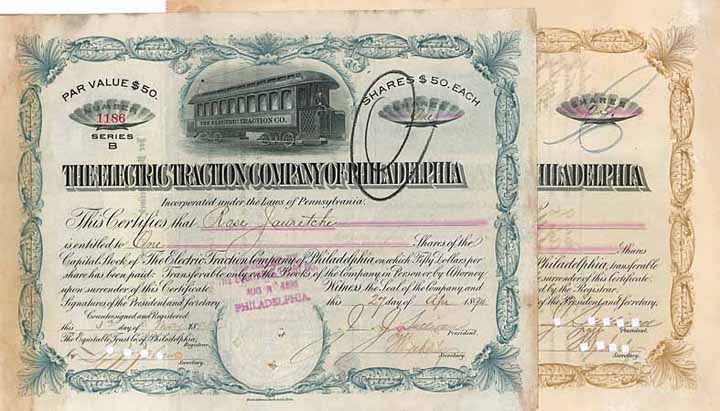 PAR VALUE $50.
SHARES $50. EACH
NUMBER
1186
SERIES
B
THE ELECTRIC TRACTION CO.
SHARES
One
THE ELECTRIC TRACTION COMPANY OF PHILADELPHIA
Incorporated under the Laws of Pennsylvania.
This Certifies that Rose Jauretche
is entitled to One Shares of the
Capital Stock of The Electric Traction Company of Philadelphia on which Fifty Dollars per
share has been paid. Transferable only on the Books of the Company in Person or by Attorney
upon surrender of this Certificate. Witness, the Seal of the Company and
Signatures of the President and Secretary this 27 day of Apr 189
Countersigned and Registered
this 3rd day of May 18
The Equitable Trust Co. of Philadelphia,
Registrar.
President.
Secretary.
Secretary.
PHILADELPHIA.
SHARES
ILADELPHIA
Shares
Philadelphia, transferable
surrender of this Certificate,
by the Registrar.
President and Secretary
President.
Secretary.